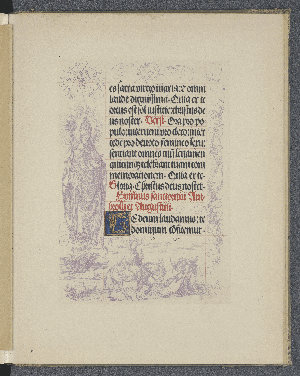 es sacra virgo maria: et omni
laude dignissima. Quia ex te
ortus est sol iusticie christus de
us noster. Vers. Ora pro po
pulo: interueni pro clero: inter
cede pro deuoto femineo sexu:
sentiant omnes tuum leuamen
quicunq celebrant tuam com
memorationem. Quia ex te
Gloria. Christus deus noster.
Hymnus sanctorum Am
brosii et Augustini.
Te deum laudamus: te
dominum confitemur.